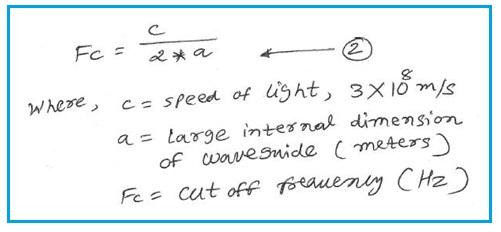 Fc = c / 2*a ← ②
Where, c = speed of light, 3×10⁸ m/s
a = large internal dimension
of waveguide (meters)
Fc = cut off frequency (Hz)